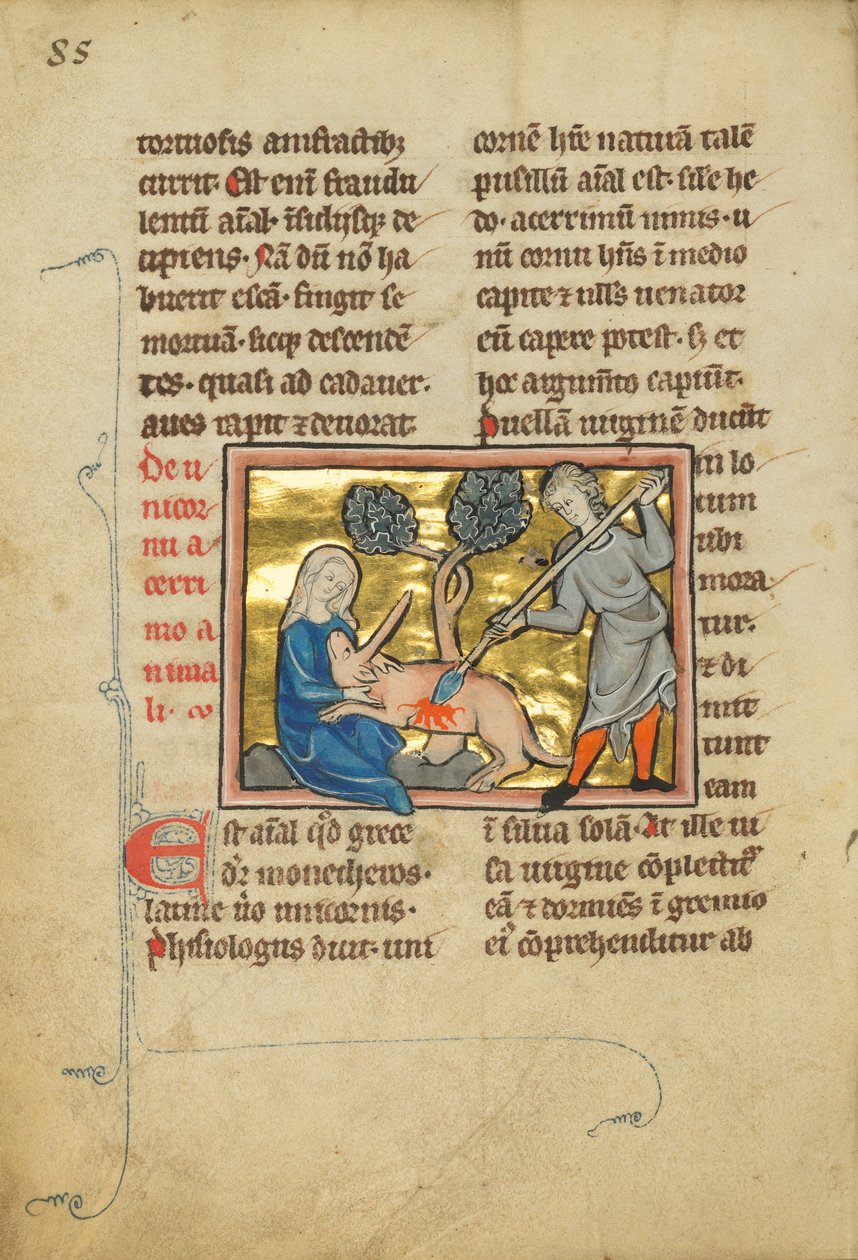 85
tortuosis amfractibꝫ
currit. Est enī fraudu
lentū aīal. īsidijsqꝫ de
cipiens. Nā dū nō ha
buerit escā. fingit se
mortuā. sicqꝫ descendē
tes. quasi ad cadauer.
aues rapit ⁊ deuorat.
De u
nicor
nu a
cerri
mo a
nima
li.
Est aīal qͦd grece
dr̄ monecheros.
latine ūo unicornis.
Phisiologus dicit. uni
cornē hr̄e naturā talē
pusillū aīal est. sił'e he
do. acerrimū nimis. u
nū cornu hn̄s ī medio
capite ⁊ nll's uenator
eū capere potest. sꝫ et
hoc argum̄to capiūt.
Puellā uirginē ducūt
in lo
cum
ubi
mora
tur.
⁊ di
mit
tunt
eam
ī silua solā. At ille ui
sa uirgine cōplectit᷑
eā ⁊ dormiēs ī gremio
ei᾽ cōprehenditur ab